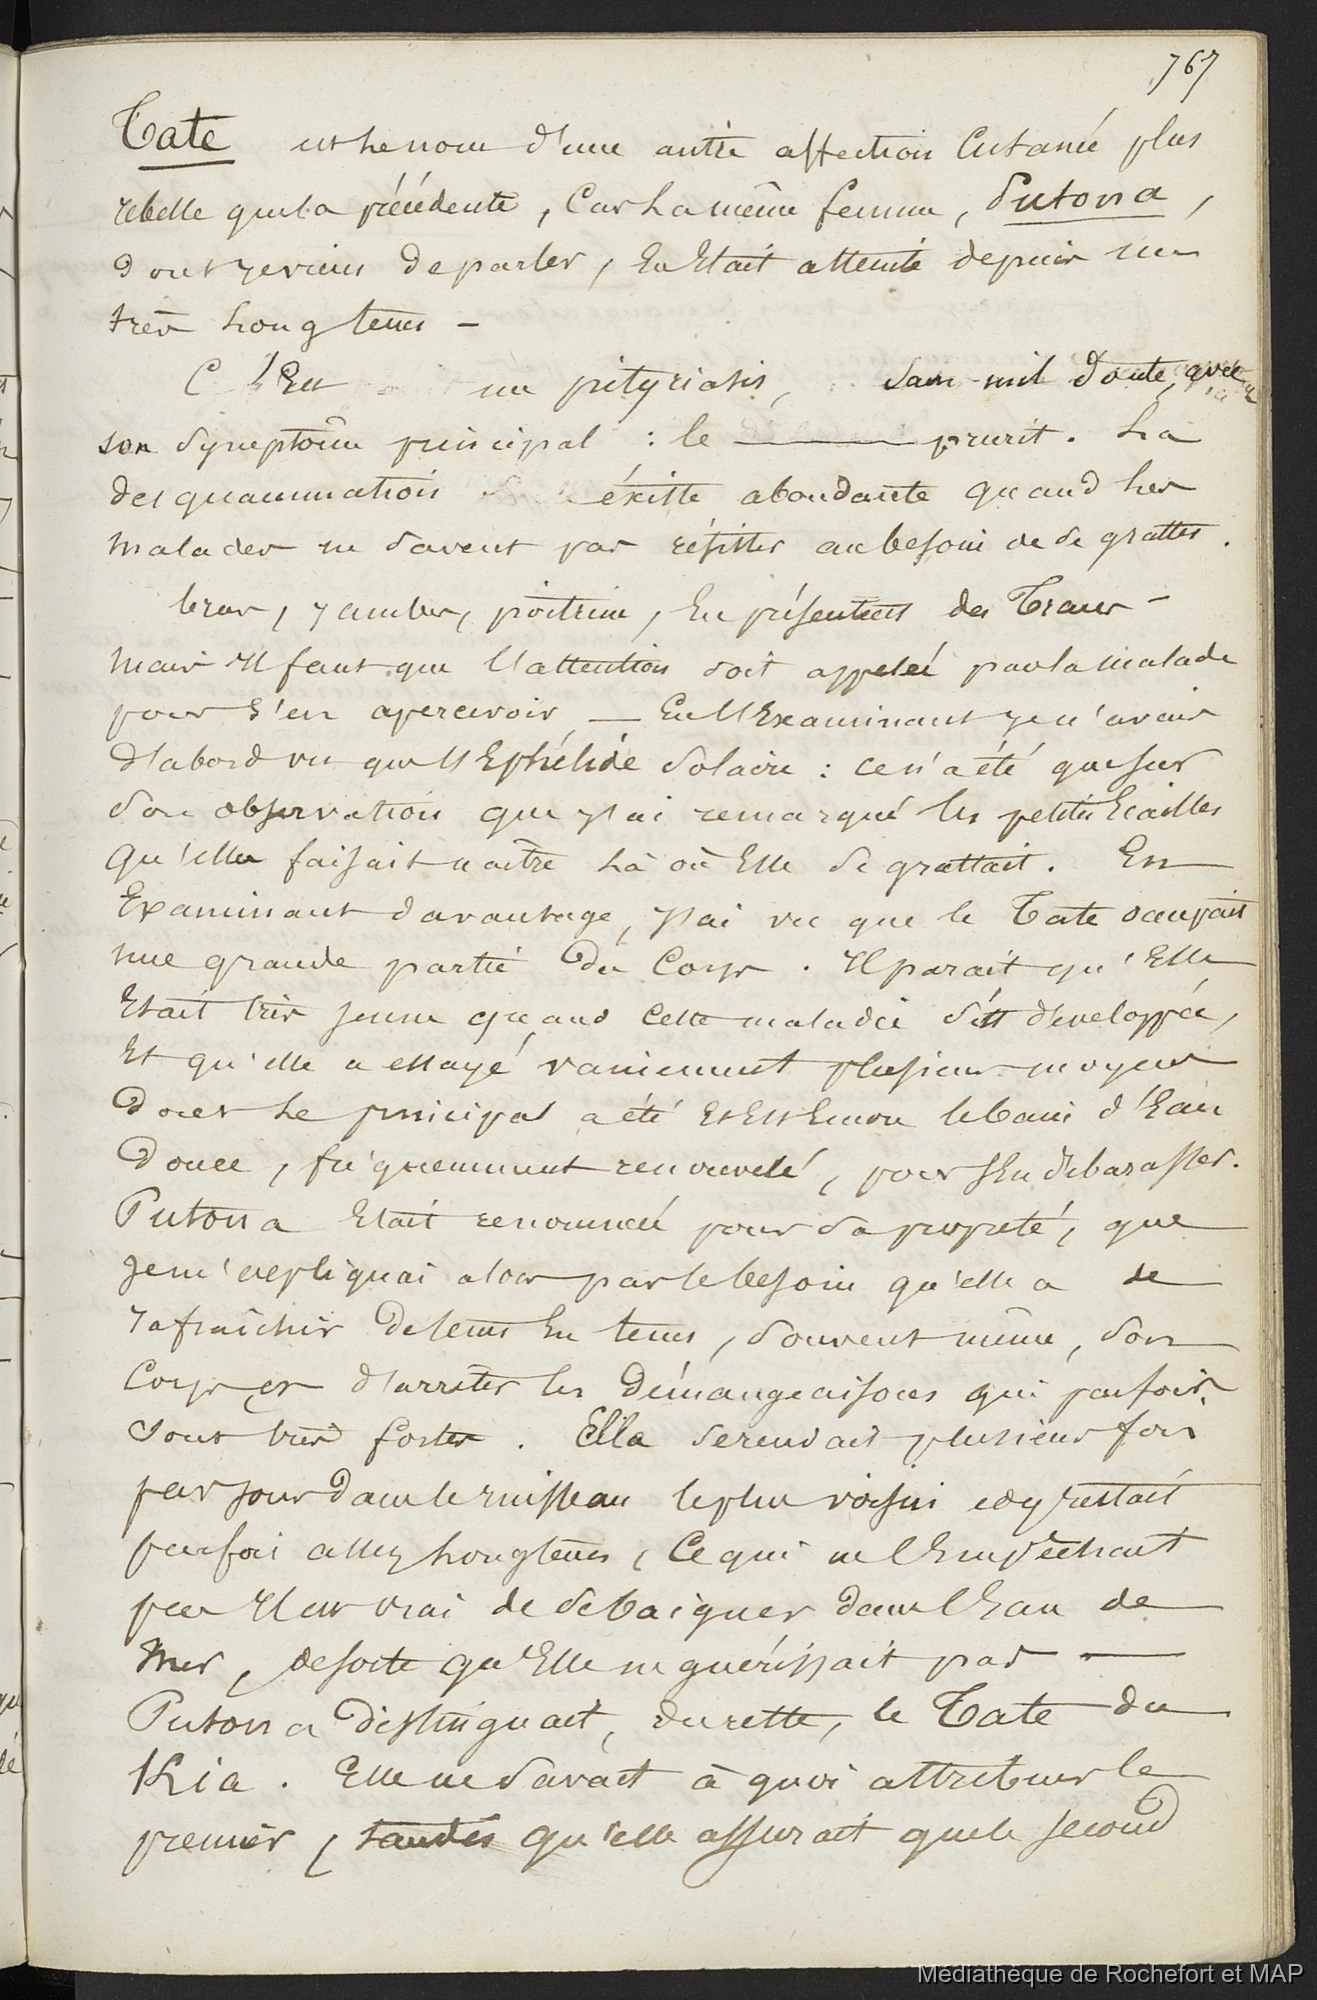 767
Tate est le nom d'une autre affection Cutanée plus
rebelle que la précédente, Car La même femme, Putona,
dont je viens de parler, En Etait atteinte depuis un
très Longtems -
C'Est un pityriasis, sans nul doute, avec
son symptôme principal : le ——— prurit. La
desquammation éxiste abondante quand Les
malades ne savent pas résister au besoin de se gratter.
bras, jambes, poitrine, En présentent des Traces -
mais Il faut que l'attention soit appelée par la malade
pour s'en apercevoir — En l'Examinant je n'avais
d'abord vu que l'Ephélide solaire : ce n'a été que sur
son observation que j'ai remarqué les petites Ecailles
qu'elle faisait naître Là où Elle se grattait. En
Examinant davantage, j'ai vu que le Tate occupait
une grande partie du Corps. Il parait qu'Elle
Etait très jeune quand cette maladie s'est développée,
Et qu'elle a essayé vainement plusieurs moyens
dont Le principal a été Et Est Encore le bain d'Eau
douce, fréquemment renouvelé, pour s'En débarasser.
Putona Etait renommée pour sa propreté, que
je m'expliquai alors par le besoin qu'elle a de
rafraîchir de tems En tems, souvent même, son
Corps et d'arrêter les démangeaisons qui parfois
sont très fortes. Ella se rendait plusieurs fois
par jour dans le ruisseau le plus voisin et y restait
parfois assez Longtems, Ce qui ne l'Empêchait
pas Il est vrai de se baigner dans l'Eau de
Mer, de sorte qu'Elle ne guérissait pas —
Putona distinguait, du reste, le Tate du
Kia. Elle ne savait à quoi attribuer le
premier, tandis qu'elle assurait que le second
Médiathèque de Rochefort et MAP